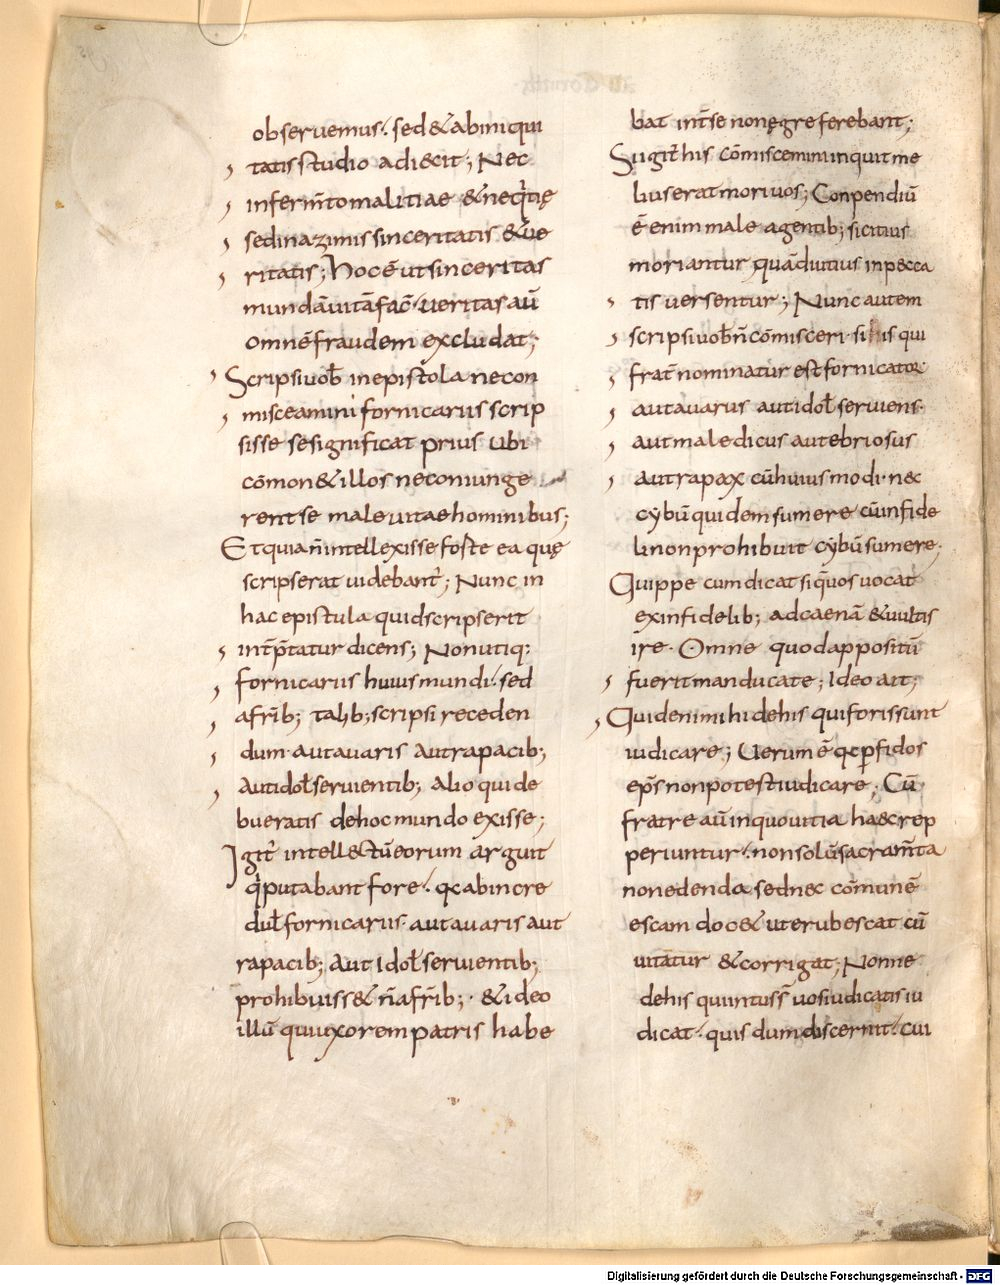 obseruemus. sed & abiniqui
tatis studio adi&cit; Nec
in fermto malitiae & neqtię
sed in azimis sinceritatis & ue
ritatis; Hoc ē ut sinceritas
mundā uitā fac. ueritas aū
omnē fraudem excludat;
Scripsi uob in epistola ne con
misceamini fornicariis scrip
sisse se significat prius ubi
cōmon& illos ne coniunge
rent se male uitae hominibus;
Et quia ñ intellexisse foste ea quę
scripserat uidebant; Nunc in
hac epistula quid scripserit
intptatur dicens; Non utiq:
fornicariis huius mundi. sed
a frib; talib; scripsi receden
dum. aut auaris aut rapacib;
aut idol seruientib; Alioqui de
bueratis de hoc mundo exisse;
Igit intell&tū eorum arguit
q putabant fore. qa ab incre
dul fornicariis. aut auaris aut
rapacib; Aut Idol seruientib;
prohibuiss& ñ a frib; & ideo
illū qui uxorem patris habe
bat int se non ęgre ferebant;
Si igit his cōmiscemini inquit me
lius erat mori uos; Conpendiū
ē enim male agentib; si citius
moriantur quā diutius in pecca
tis uersentur; Nunc autem
scripsi uob ñ cōmisceri. si his qui
frat nominatur est fornicator
aut auarus aut idol seruiens.
aut maledicus aut ebriosus
aut rapax cū huius modi. nec
cybū quidem sumere cū infide
li non prohibuit cybū sumere;
Quippe cum dicat si quos uocat
ex infidelib; ad caenā & uultis
ire. Omne quod appositū
fuerit manducate; Ideo ait;
Quid enim mihi de his qui foris sunt
iudicare; Uerum ē qa pfidos
eps non potest iudicare; Cū
fratre aū in quo uitia haec rep
periuntur. non solū sacramta
non edenda sed nec cōmunē
escam doc& ut erubescat cū
uitatur & corrigat; Nonne
de his qui intus s uos iudicatis iu
dicat. quis dum discernit. cui
Digitalisierung gefördert durch die Deutsche Forschungsgemeinschaft - DFG